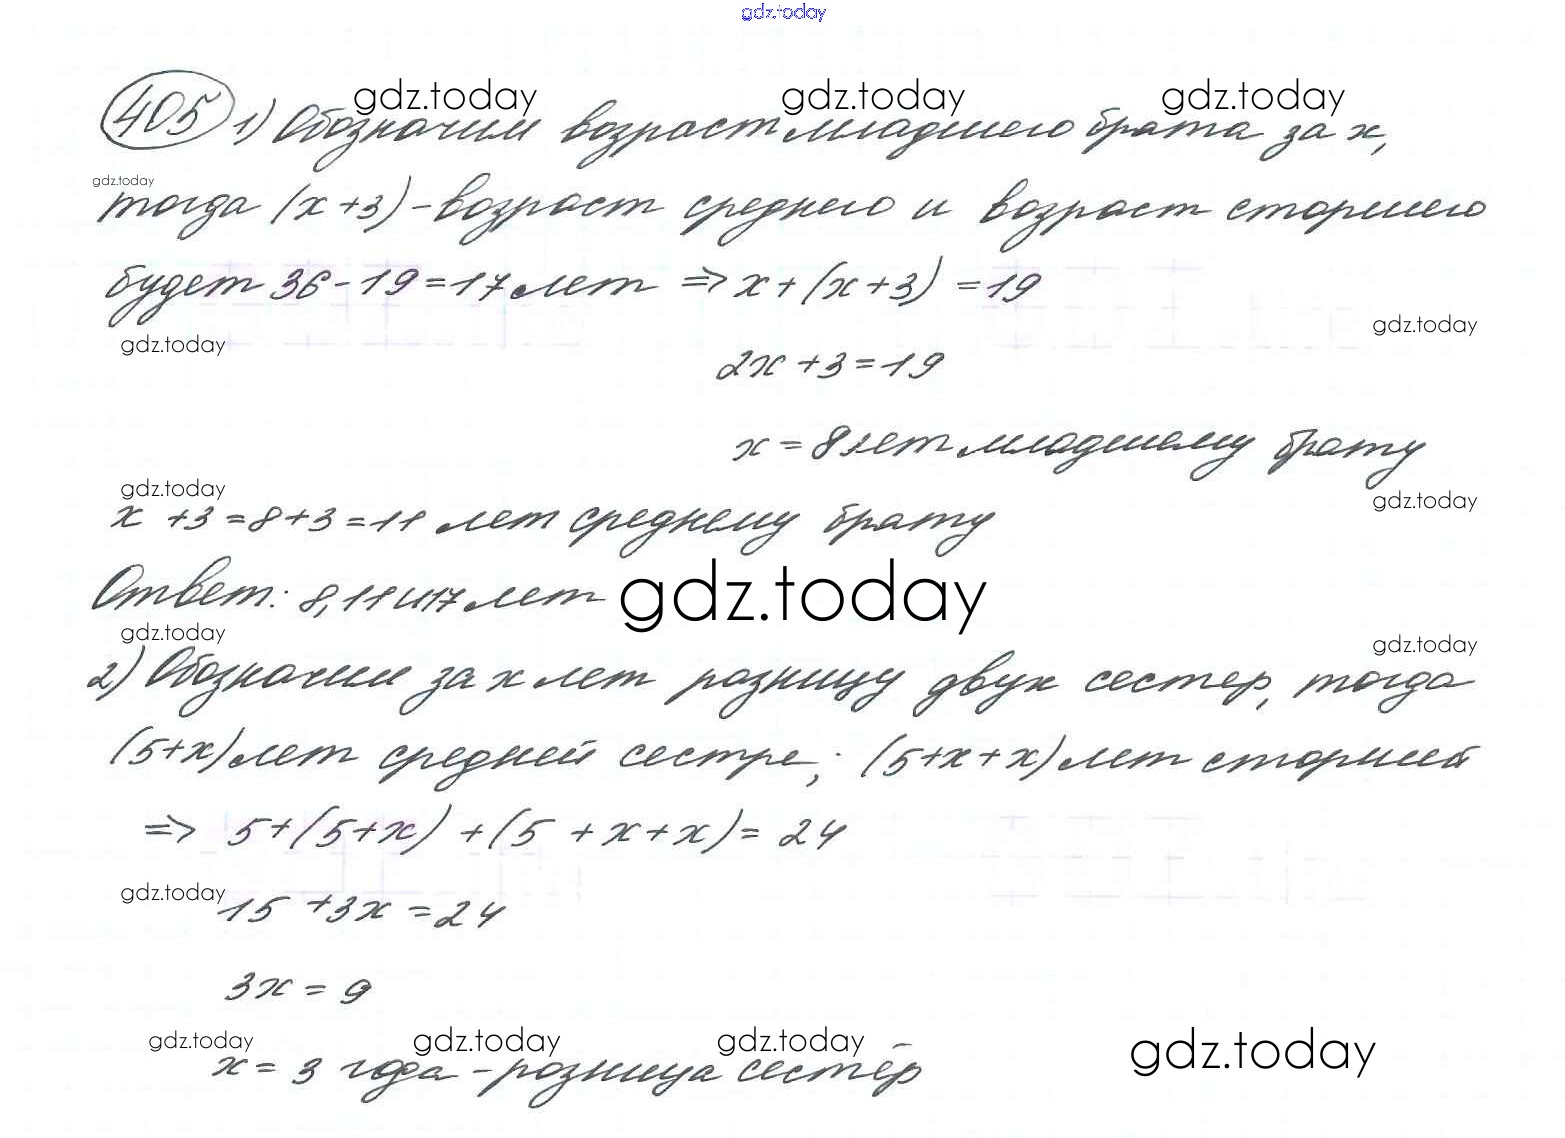 gdz.today
gdz.today gdz.today gdz.today
405 1) Обозначим возраст младшего брата за x,
gdz.today
тогда (x+3) - возраст среднего и возраст старшего
будет 36-19=17 лет => x+(x+3) =19
gdz.today
gdz.today
2x+3=19
x=8 лет младшему брату
gdz.today
gdz.today
x+3=8+3=11 лет среднему брату
Ответ: 8, 11 и 17 лет gdz.today
gdz.today
gdz.today
2) Обозначим за x лет разницу двух сестер, тогда
(5+x) лет средней сестре; (5+x+x) лет старшей
=> 5+(5+x) +(5+x+x)= 24
gdz.today
15+3x=24
3x=9
gdz.today gdz.today gdz.today gdz.today
x=3 года - разница сестёр